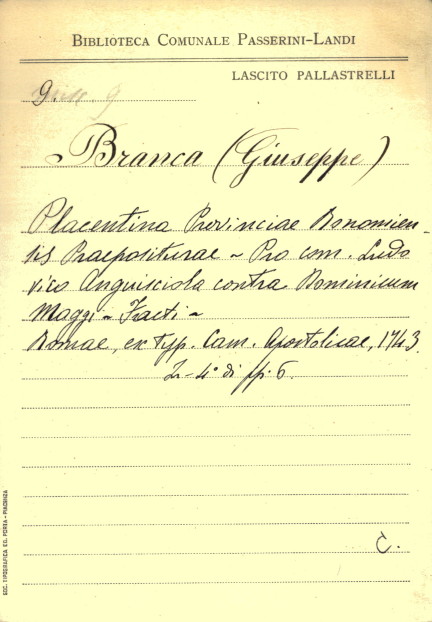 BIBLIOTECA COMUNALE PASSERINI-LANDI
LASCITO PALLASTRELLI
9. 9
Branca (Giuseppe)
Placentina Provinciae Bononien-
sis Praepositurae - Pro com. Ludo
vico Anguisciola contra Dominicum
Maggi - Facti -
Romae, ex typ. Cam. Apostolicae, 1743.
In-4° di pp. 6.
C.
SOC. TIPOGRAFICA ED. PORTA - PIACENZA